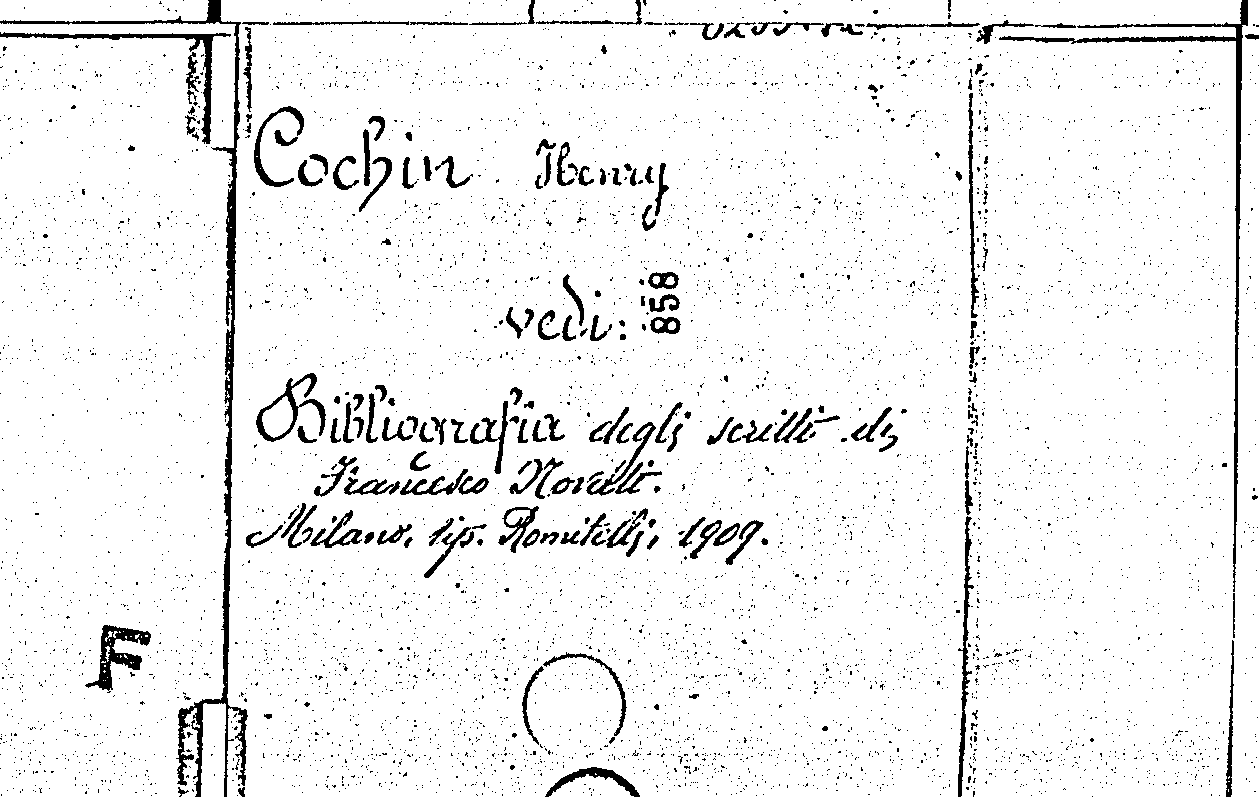 Cochin Henry
vedi: 858
Bibliografia degli scritti di
Francesco Novati.
Milano, tip. Romitelli, 1909.
F